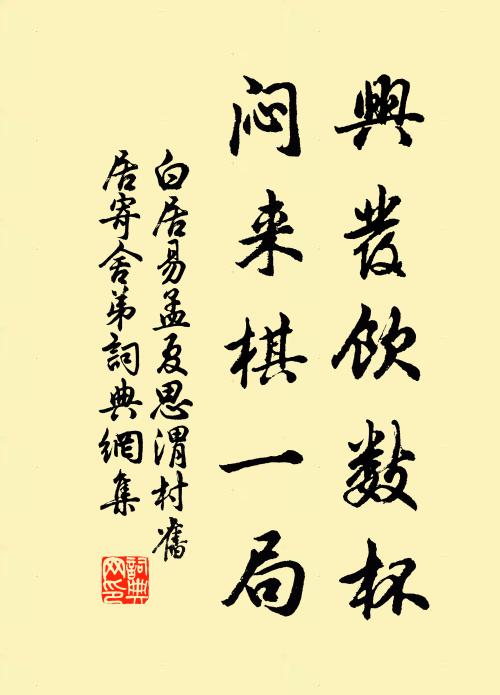 興發飲數杯
闷来棋一局
白居易孟夏思渭村舊
居寄舍弟詞典網集
詞典网印